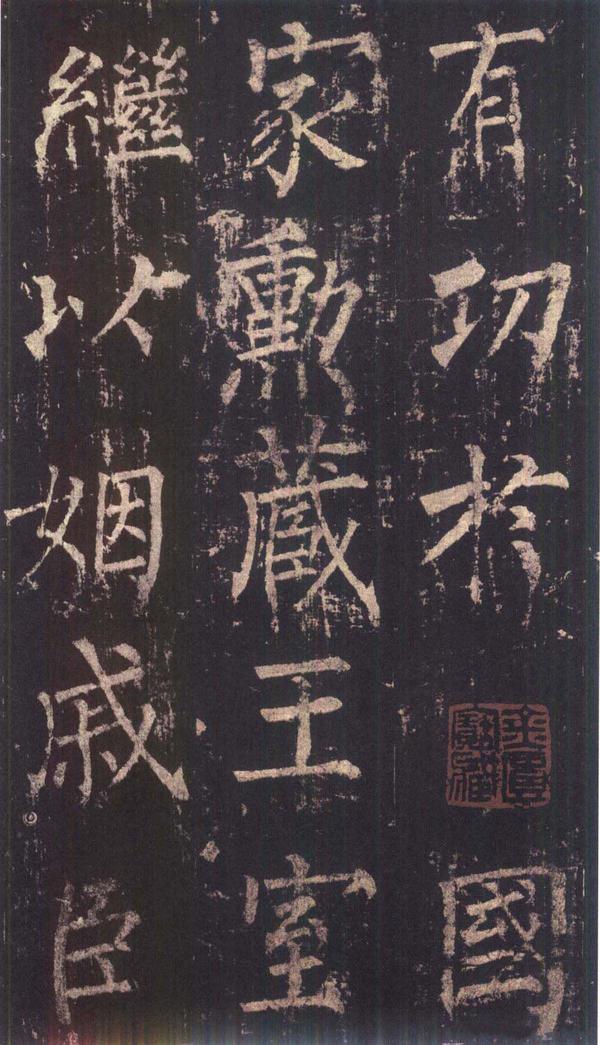 有功於國
家勳藏王室
繼以姻戚臣